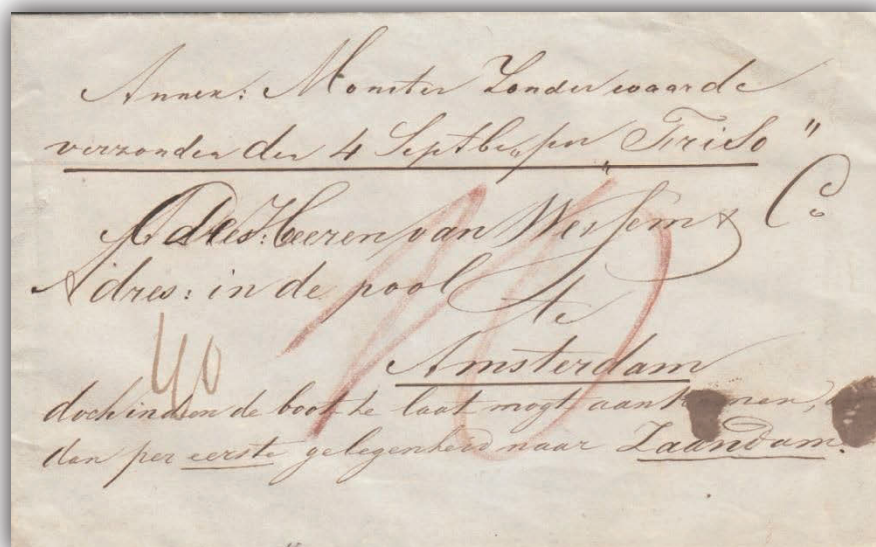 Annex: Monster Zonder waarde
verzonden den 4 Septbr, per „Friso”
Adres: Heeren van Wessem & Co
Adres: in de pool
te
Amsterdam
40
10
doch indien de boot te laat mogt aankomen,
dan per eerste gelegenheid naar Zaandam.